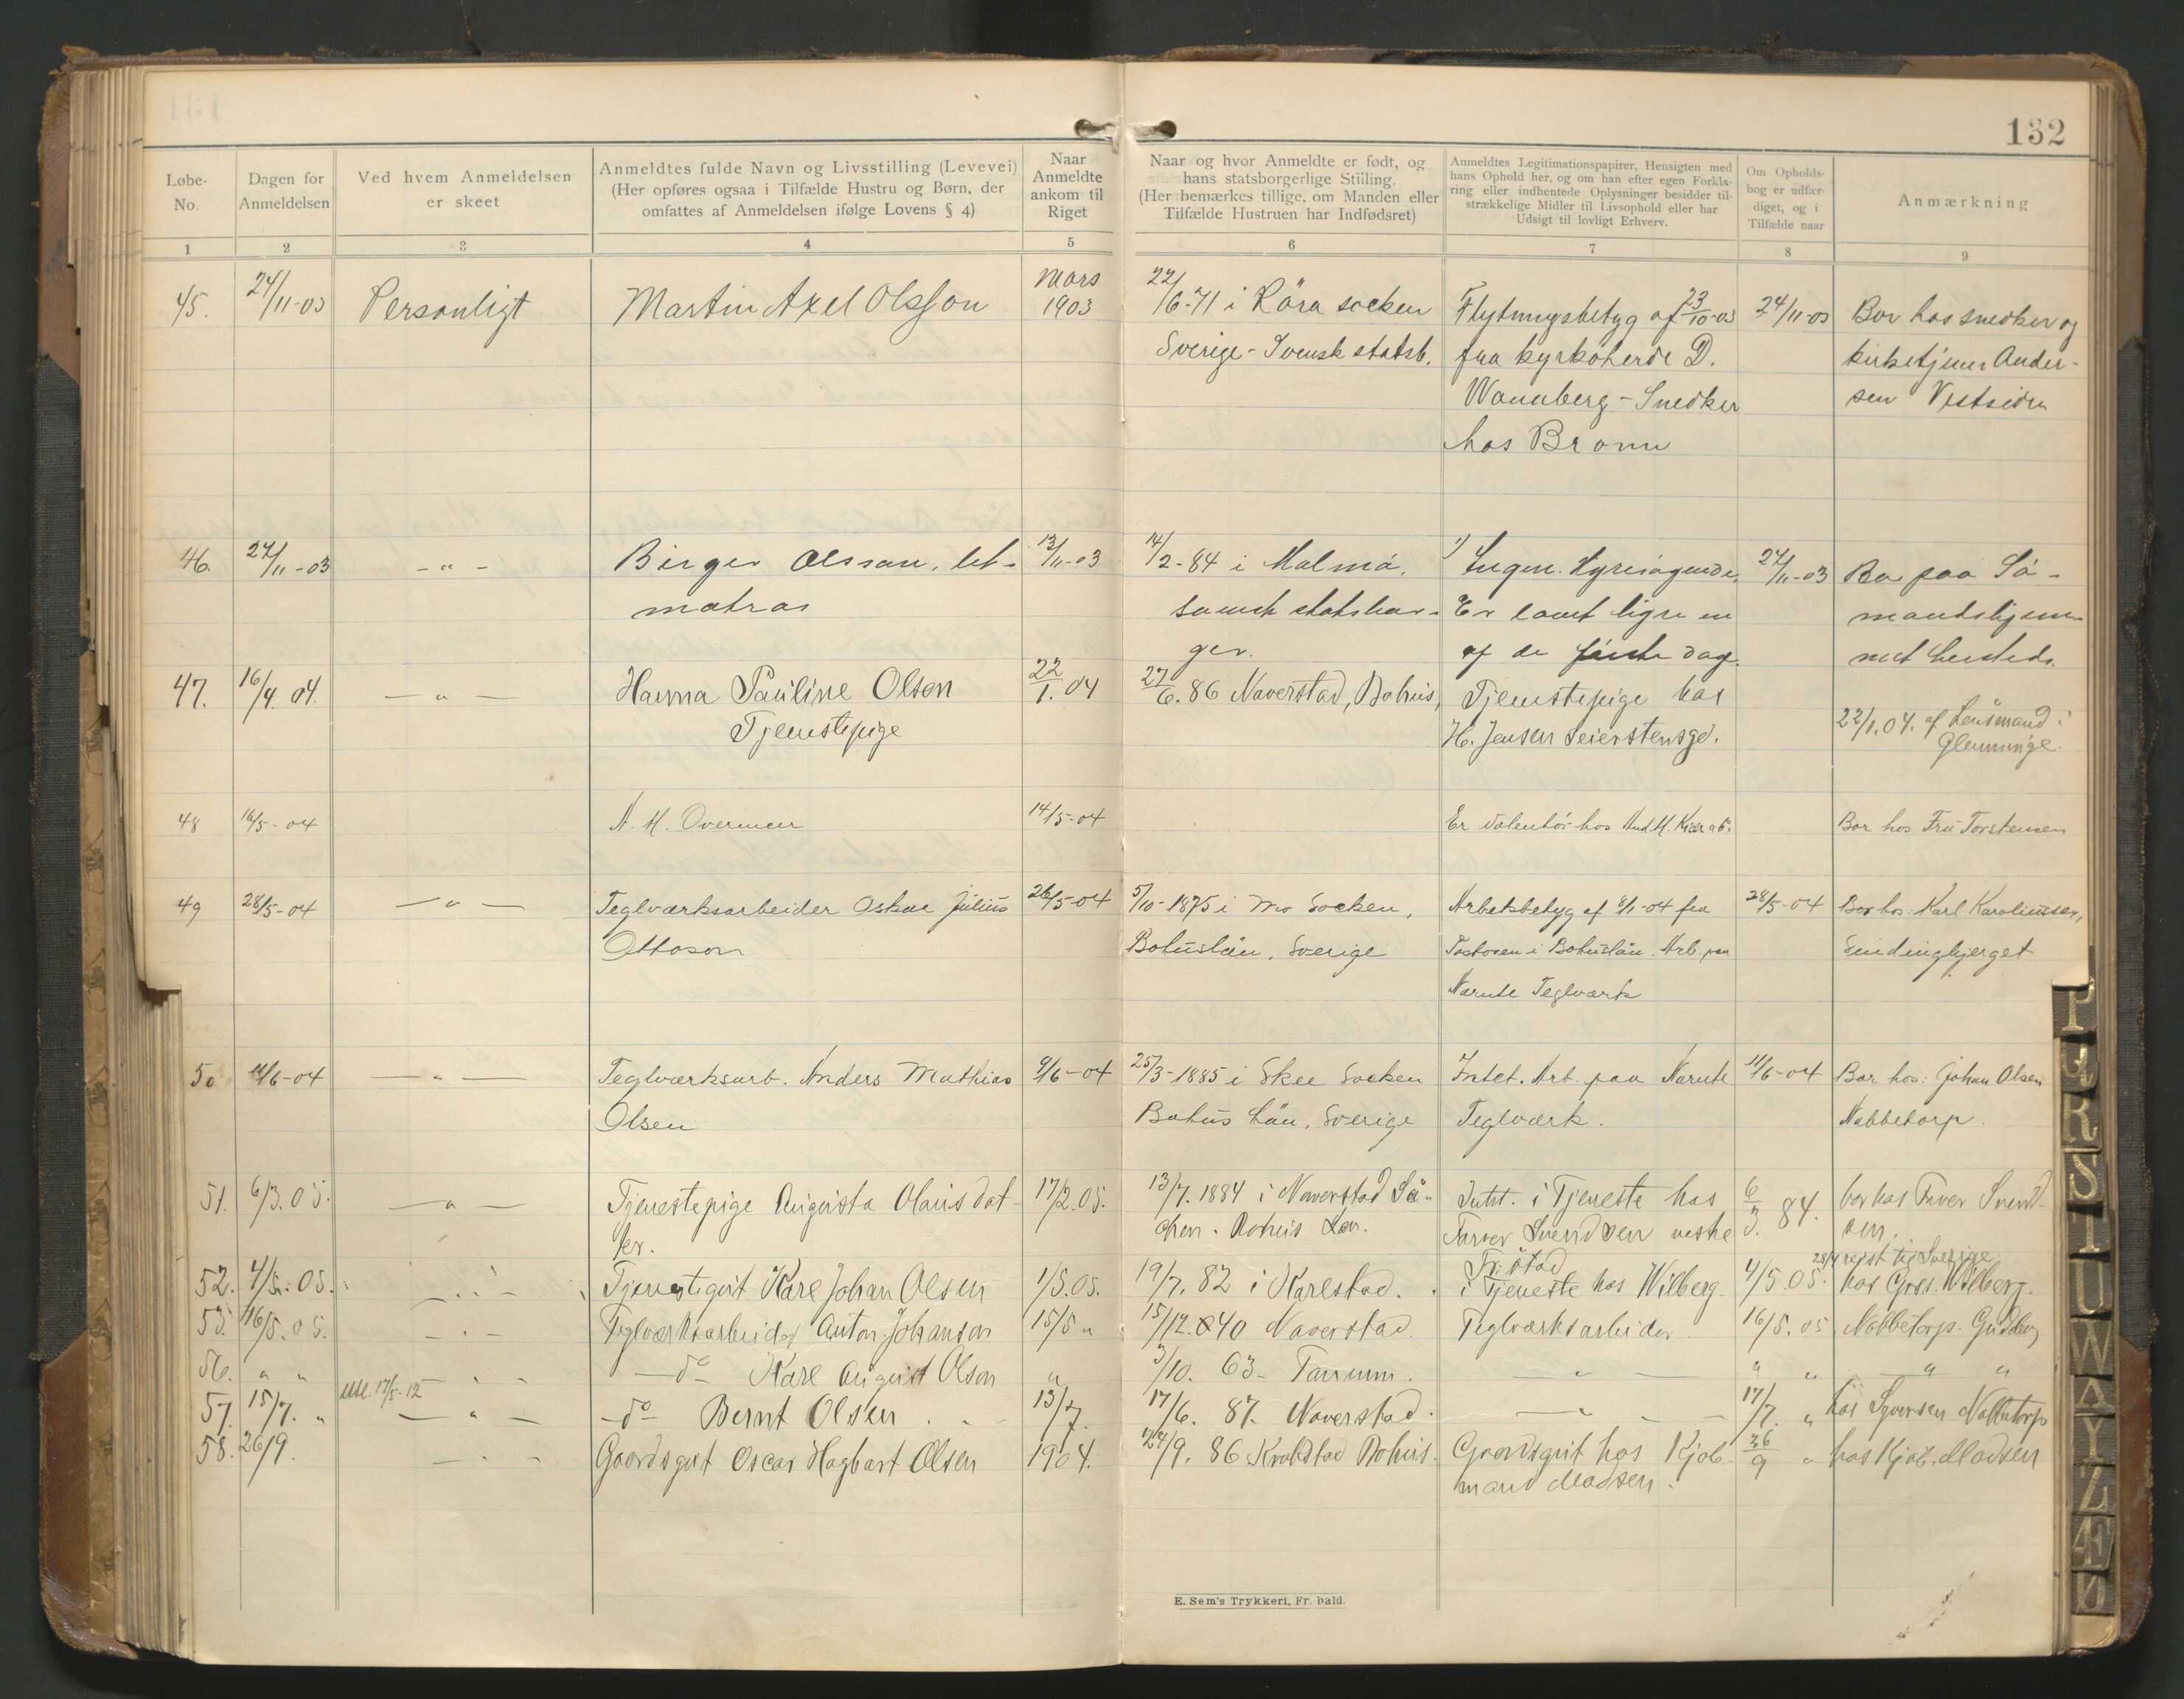 132
Løbe-
No.
Dagen for
Anmeldelsen
Ved hvem Anmeldelsen
er skeet
Anmeldtes fulde Navn og Livsstilling (Levevei)
(Her opføres ogsaa i Tilfælde Hustru og Børn, der
omfattes af Anmeldelsen ifølge Lovens § 4)
Naar
Anmeldte
ankom til
Riget
Naar og hvor Anmeldte er født, og
hans statsborgerlige Stilling.
(Her bemærkes tillige, om Manden eller
Tilfælde Hustruen har Indfødsret)
Anmeldtes Legitimationspapirer, Hensigten med
hans Ophold her, og om han efter egen Forkla-
ring eller indhentede Oplysninger besidder til-
strækkelige Midler til Livsophold eller har
Udsigt til lovligt Erhverv.
Om Opholds-
bog er udfær-
diget, og i
Tilfælde naar
Anmærkning
1 2 3 4 5 6 7 8 9
45. 24/11-03 Personligt Martin Axel Olsson Mars 1903 22/6-71 i Röra socken Flytningsbetyg af 23/10-03 24/11-03 Bor hos snedker og
Sverige - Svensk statsb. fra kyrkoherde D. kirketjener Ander-
Wannberg - Snedker sen Vestsiden
hos Bronn
46. 27/11-03 - " - Birger Olsson, let- 13/11-03 14/2-84 i Malmö, 1) Ingen. 27/11-03 Bor paa Sö-
matros Er en mandshjem-
ger. af de dag. met
47. 16/4 04. - " - Hanna Pauline Olsen 22/1. 04 27/6. 86 Naverstad, Bohus, Tjenestepige hos
Tjenestepige H. Jensen Seierstensgd. 22/1. 04. af Lensmand i
Glemminge.
48 16/5-04 A. M. Overmeer 14/5-04 Er volentör hos And. H. Kiær & Co. Bor hos Fru Torstensen
49 28/5-04 - " - Teglværksarbeider Oskar Julius 26/5-04 5/10-1875 i Mo Socken, Arbetsbetyg af 8/1-04 fra 28/5-04 Bor hos: Karl Karoliussen,
Ottoson Bohuslän, Sverige i Bohuslän. Arb. paa
Narute Teglværk
50 11/6-04 - " - Teglværksarb. Anders Mathias 9/6-04 25/3-1885 i Skee Socken Intet. Arb. paa Narute 11/6-04 Bor hos: Johan Olsen
Olsen Bohus Län, Sverige Teglværk. Nabbetorp.
51. 6/3. 05. - " - Tjenestepige Augusta Olausdat- 17/2. 05. 13/7. 1884 i Naverstad So- Intet. i Tjeneste hos 6/3. 84. bor hos Farver Svend-
ter. Bohus Len. Farver Svendsen sen.
Fr.stad 28/4 reist til Sverige.
52. 4/5. 05. - " - Tjenestegut Karl Johan Olsen 1/5. 05. 19/7. 82 i Karlstad. i Tjeneste hos Wilberg. 4/5. 05. hos Gros. Wilberg.
53. 16/5. 05. - " - Teglværksarbeider Anton Johanson 15/5 " 15/12. 840 Naverstad. Teglværksarbeider 16/5. 05 Nabbetorp.
56. " " - " - - do - Karl August Olson " 3/10. 63 - Tanum. - " - " " " "
57. 15/7. " Utl. 17/5-12 - " - - do - Bernt Olsen 13/7. 17/6. 87. Naverstad. - " - 17/7. " hos Syversen Nabbetorp
58. 26/9. - " - Gaardsgut Oscar Hagbart Olsen 1904. 24/9. 86 Bohus. Gaardsgut hos Kjøb- 26/9 " hos Kjøb. Madsen
mand Madsen.
E. Sem's Trykkeri, Fr. hald.
P
Q
R
S
T
U
W
A
Y
Z
Æ
Ø